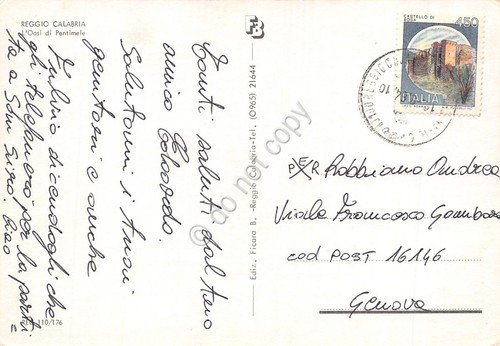 REGGIO CALABRIA
L'Oasi di Pentimele
Tanti saluti dal tuo
amico Edoardo.
Salutami i tuoi
genitori e anche
Fulvio dicendogli che
gli telefonerò per la parti=
ta a San Siro. Ciao
REC 110/176
Ediz. Ficara B. - Reggio Calabria - Tel. (0965) 21644
FB
CASTELLO DI
450
ITALIA
PER Robbiano Andrea
Viale Francesco Gambaro
cod POST 16146
Genova
do not copy